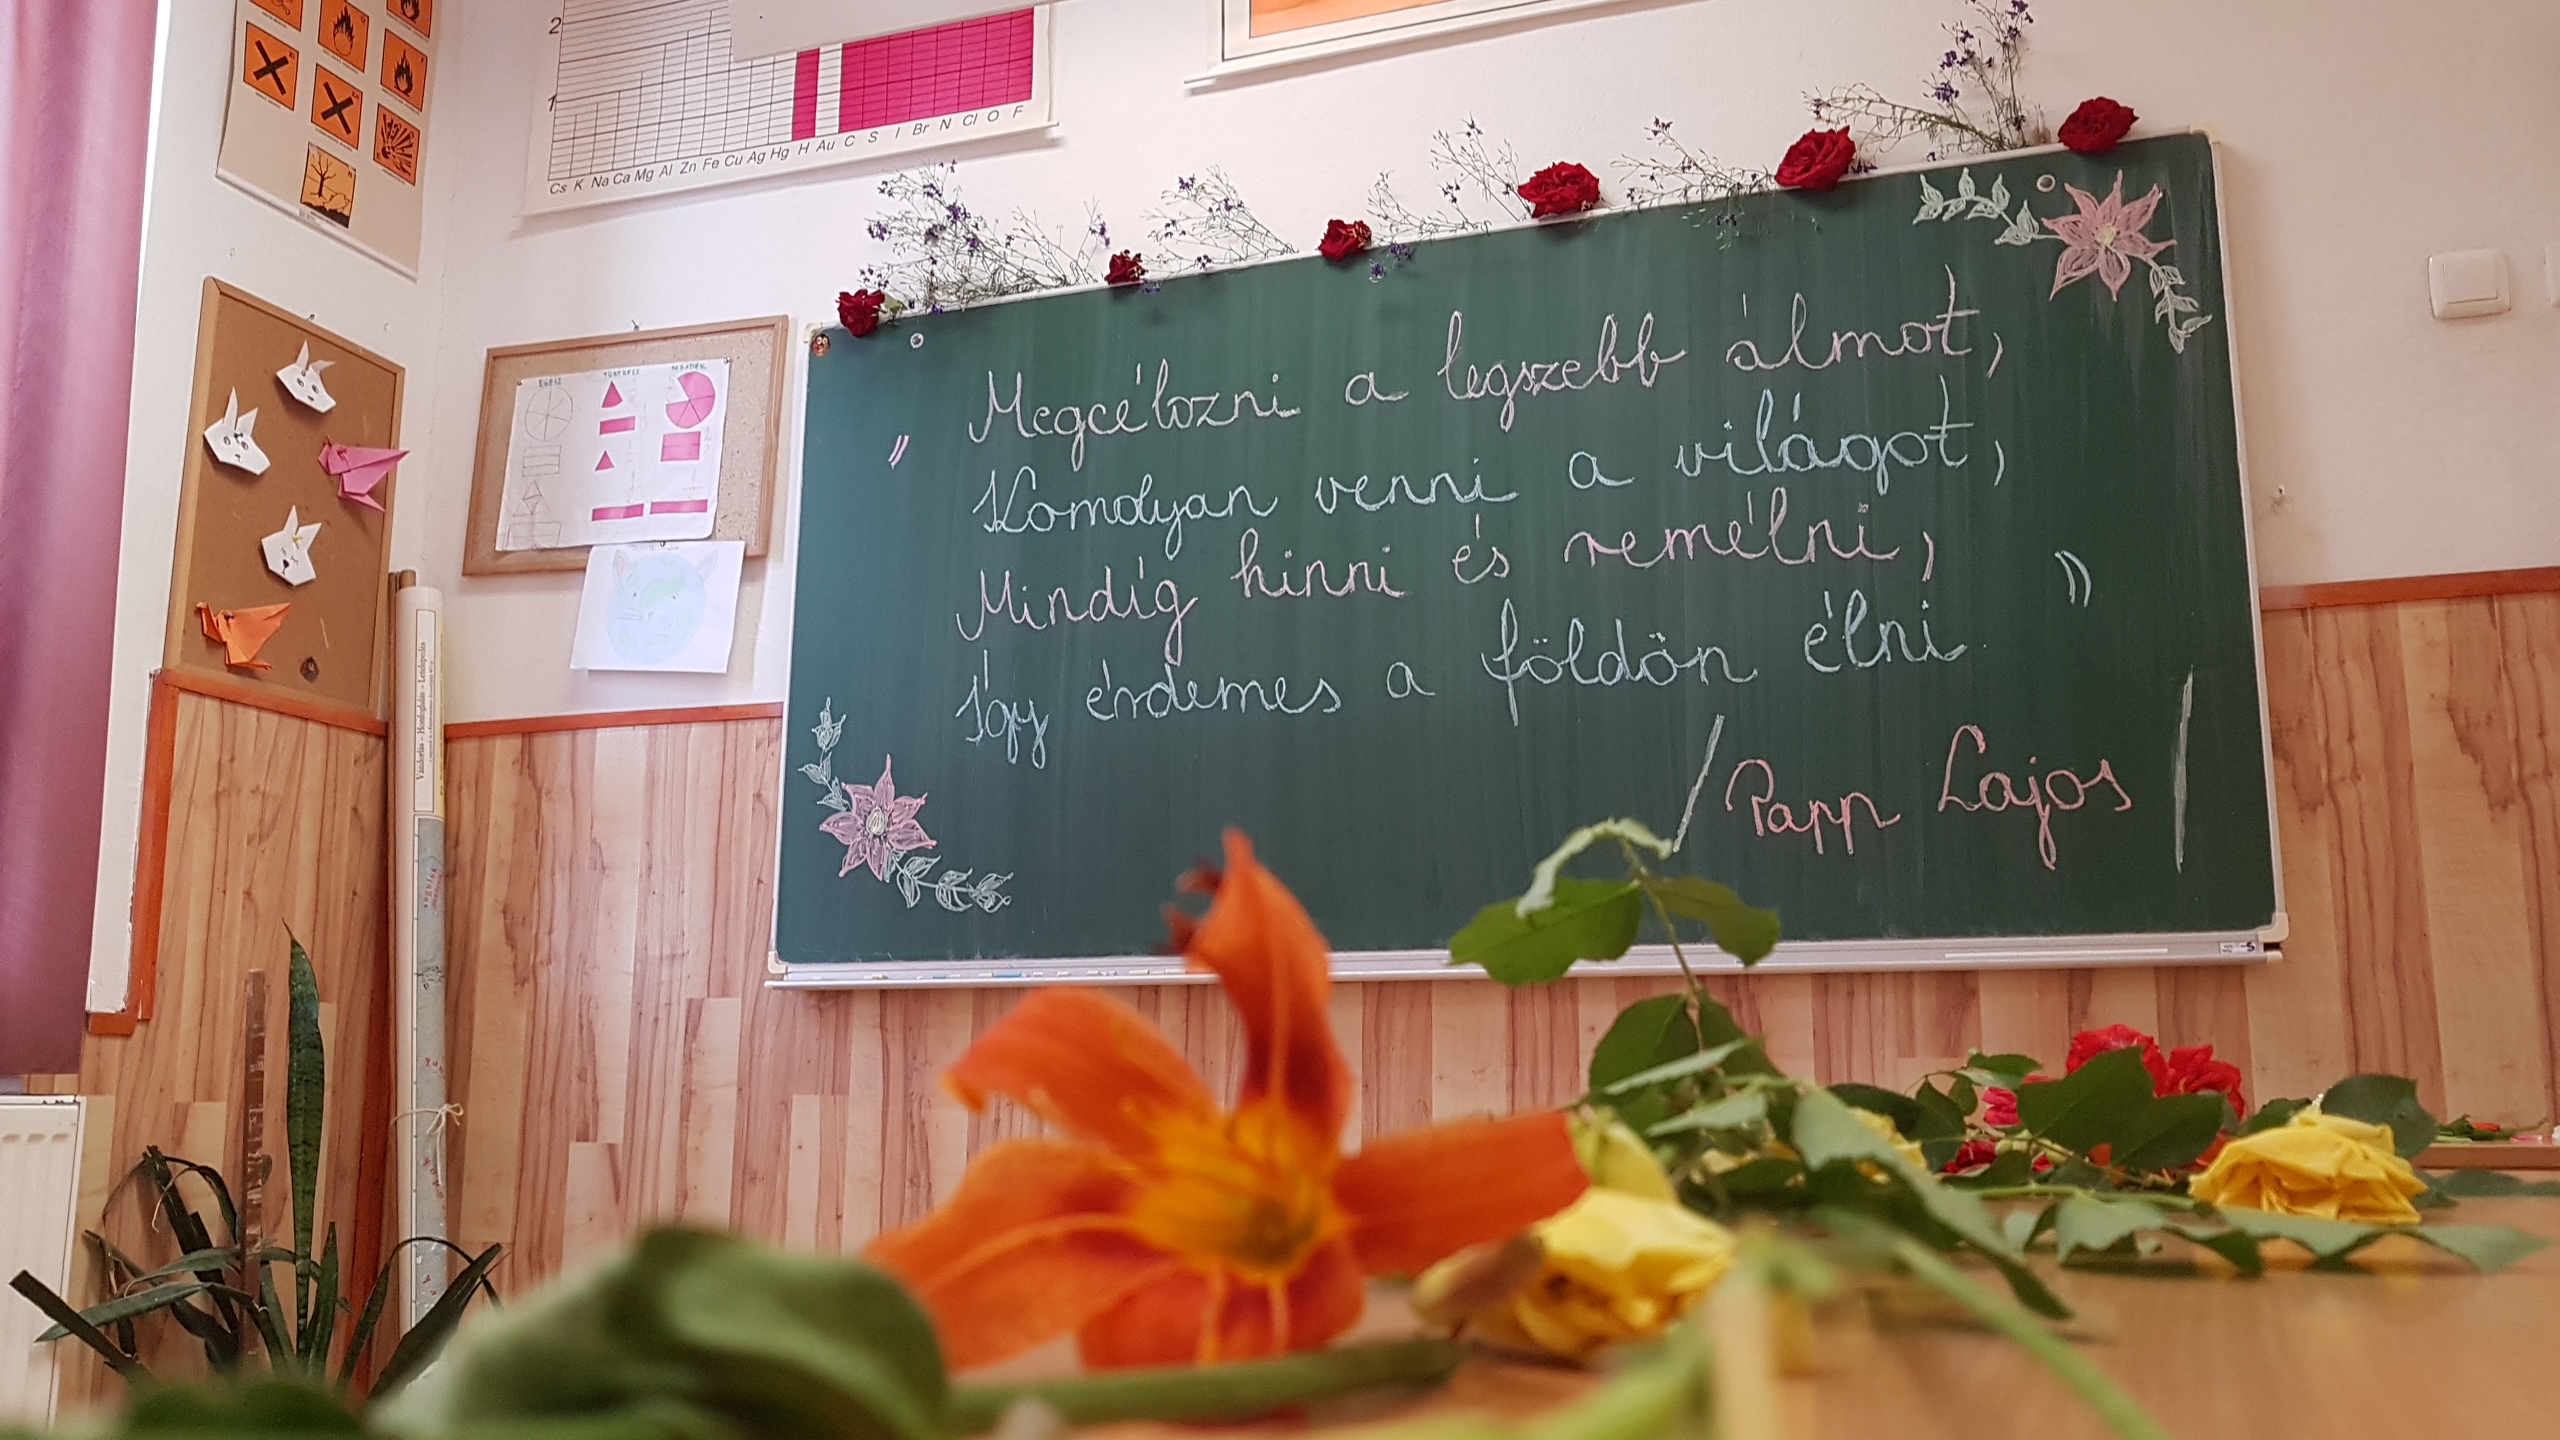 2
1
Cs K Na Ca Mg Al Zn Fe Cu Ag Hg H Au C S I Br N Cl O F
EGÉSZ TÖRTRÉSZ MARADÉK
" Megcélozni a legszebb álmot,
Komolyan venni a világot,
Mindíg hinni és remélni,
Így érdemes a földön élni. "
/Papp Lajos/
Vándorlás - Honfoglalás - Letelepedés